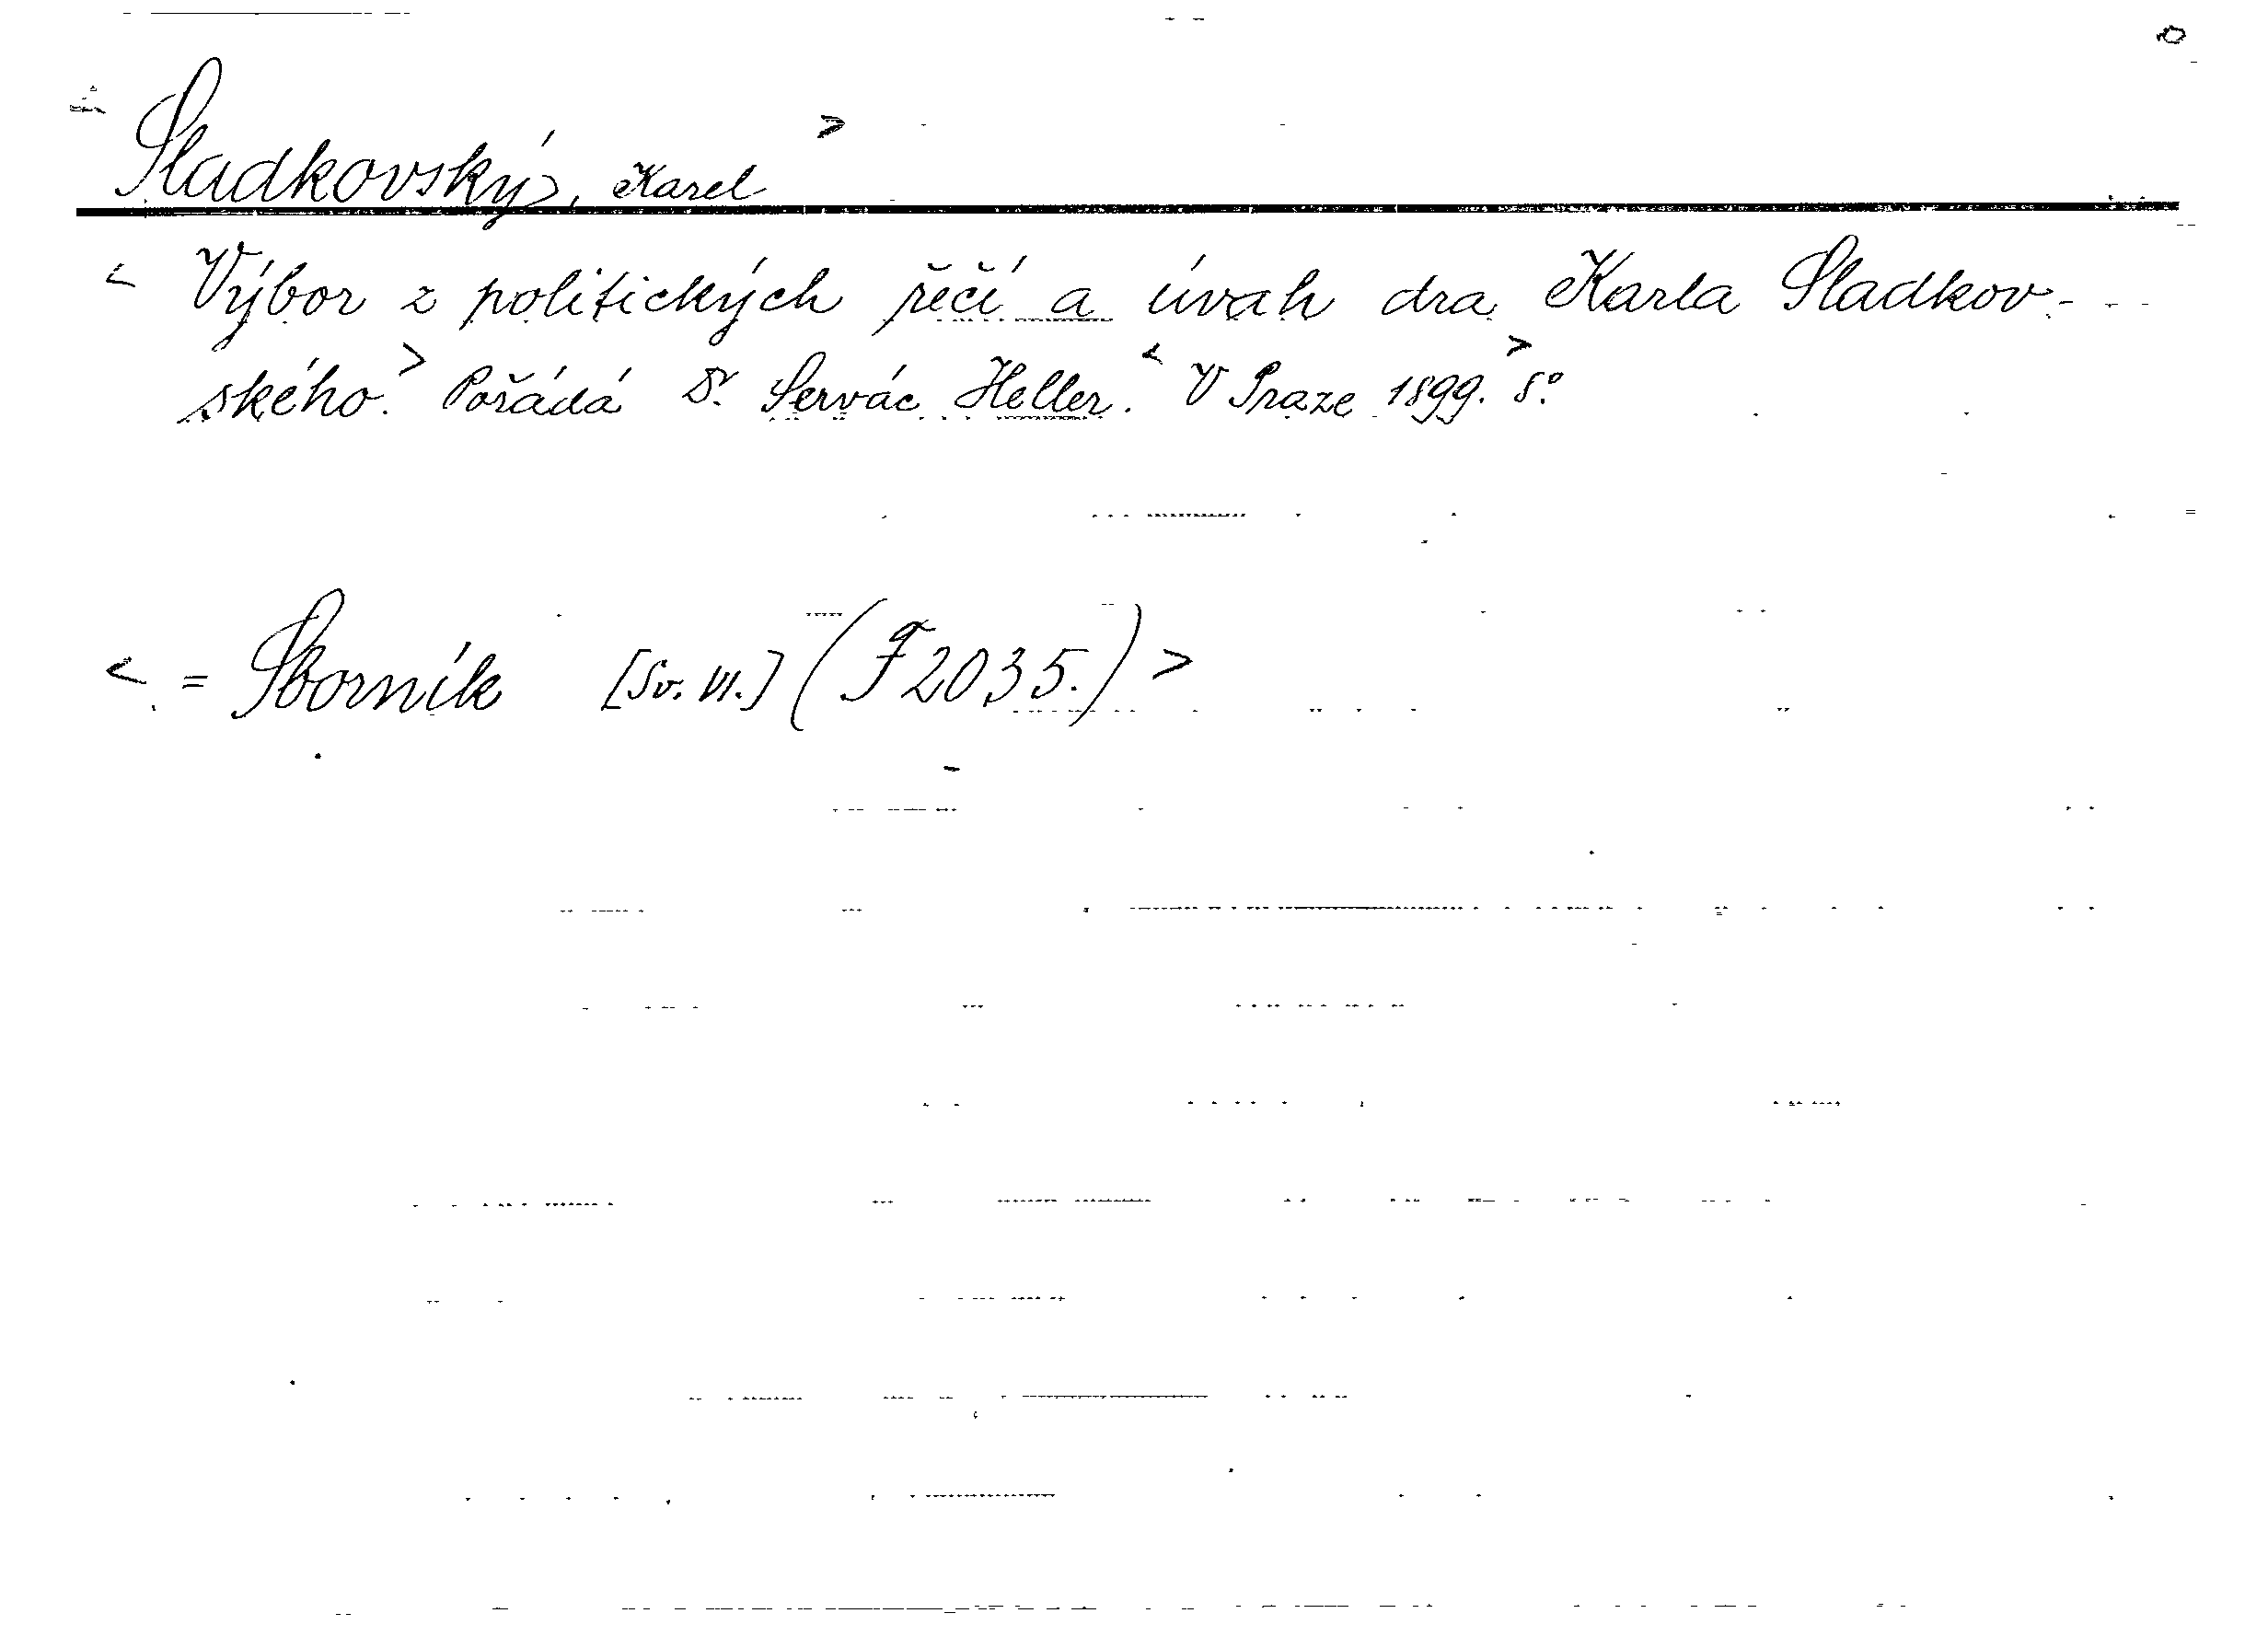 Sladkovský, Karel >
< Výbor z politických řečí a úvah dra Karla Sladkov-
ského.> Pořádá Dr. Servác Heller. < V Praze 1899.> 8°.
< = Sborník [Sv. VI.] (F 2035.) >